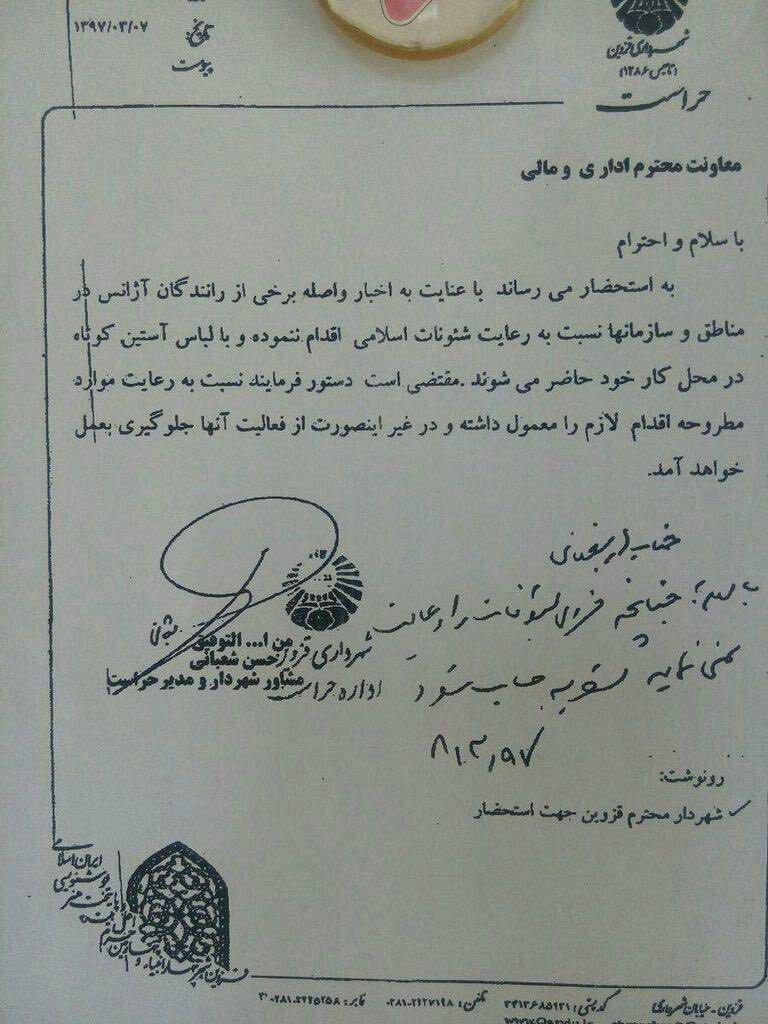 شهرداری قزوین
(تاسیس ۱۲۸۶)
حراست
تاریخ: ۱۳۹۷/۰۳/۰۷
پیوست
معاونت محترم اداری و مالی
با سلام و احترام
به استحضار می رساند با عنایت به اخبار واصله برخی از رانندگان آژانس در
مناطق و سازمانها نسبت به رعایت شئونات اسلامی اقدام ننموده و با لباس آستین کوتاه
در محل کار خود حاضر می شوند .مقتضی است دستور فرمایند نسبت به رعایت موارد
مطروحه اقدام لازم را معمول داشته و در غیر اینصورت از فعالیت آنها جلوگیری بعمل
خواهد آمد.
چنانچه فردی شئونات را رعایت
نمی نماید
۹۷/۳/۸
من ا... التوفیق
حسن شعبانی
مشاور شهردار و مدیر حراست
شهرداری قزوین
اداره حراست
رونوشت:
شهردار محترم قزوین جهت استحضار
ایران اسلامی
خوشنویسی
پایتخت
قزوین
قزوین - خیابان شهرداری کدپستی: ۳۴۱۳۶۸۵۹۳۱ تلفن: ۰۲۸۱-۲۲۲۷۱۹۸ نمابر: ۰۲۸۱-۲۲۲۵۲۵۸